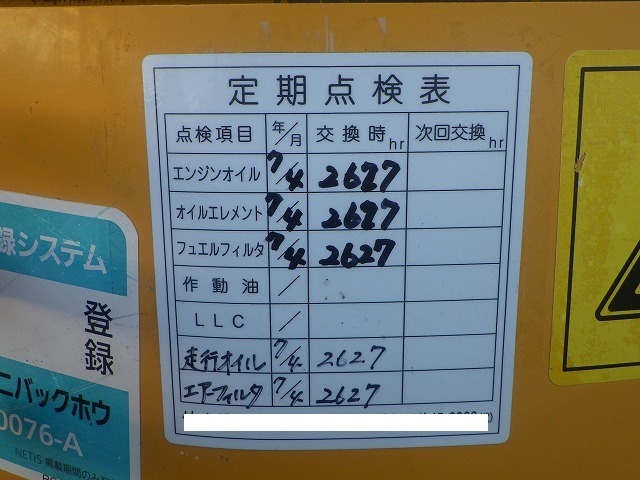 定期点検表
点検項目 年/月 交換時hr 次回交換hr
エンジンオイル 7/4 2627
オイルエレメント 7/4 2627
フュエルフィルタ 7/4 2627
作動油 /
LLC /
走行オイル 7/4 2627
エアーフィルタ 7/4 2627
録システム
登録
ニバックホウ
0076-A
NETIS 掲載期間のみ